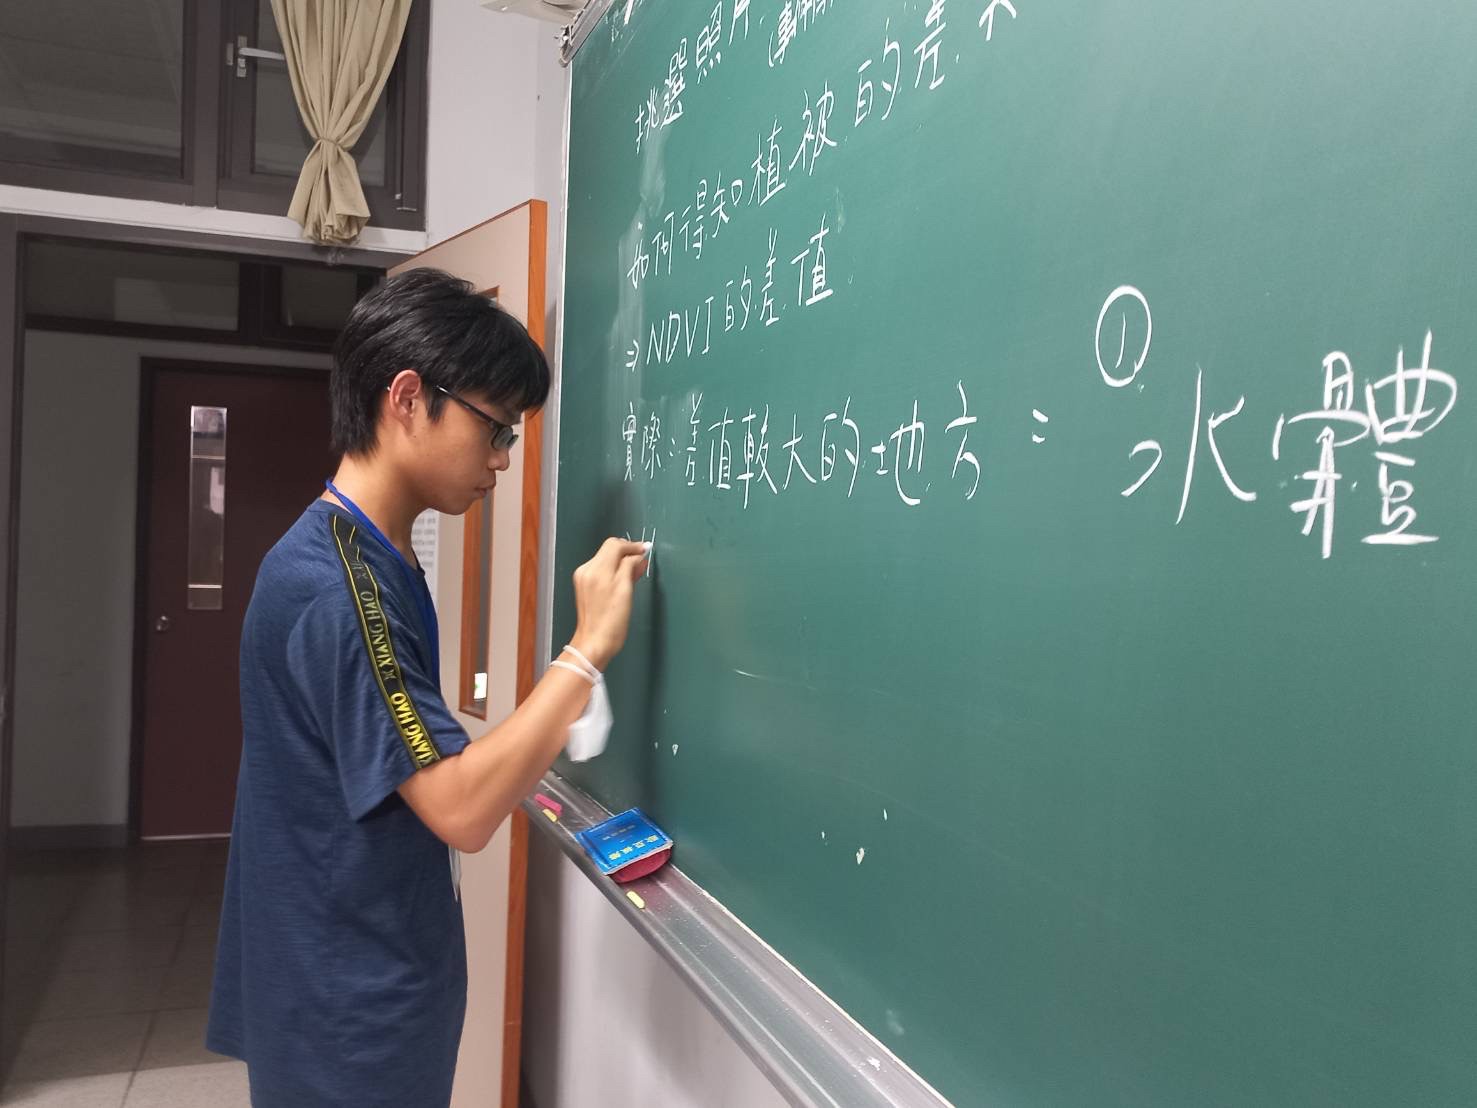 挑選照片
如何得知植被的差
⇒NDVI的差值
實際:差值較大的地方:
① 水體
XIANG HAO
XIANG HAO